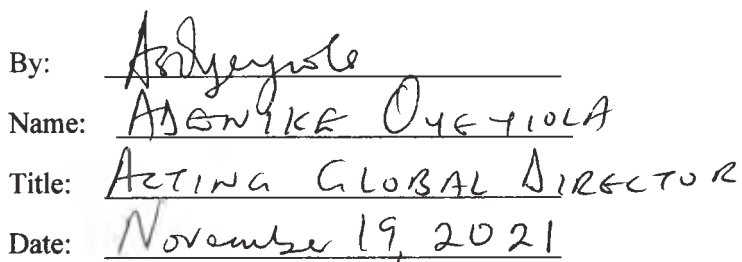 By:
Name: ADENIKE OYEYIOLA
Title: ACTING GLOBAL DIRECTOR
Date: November 19, 2021